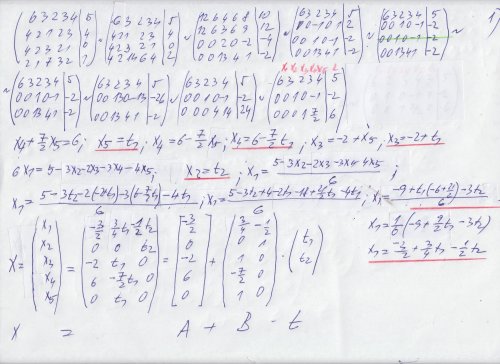 (6 3 2 3 4 | 5; 4 2 1 2 3 | 4; 4 2 3 2 1 | 0; 2 1 7 3 2 | 1) ~ (6 3 2 3 4 | 5; 4 2 1 2 3 | 4; 4 2 3 2 1 | 0; 4 2 14 6 4 | 2) ~ (12 6 4 6 8 | 10; 12 6 3 6 9 | 12; 0 0 2 0 -2 | -4; 0 0 13 4 1 | -2) ~ (6 3 2 3 4 | 5; 0 0 -1 0 1 | 2; 0 0 1 0 -1 | -2; 0 0 13 4 1 | -2) ~ (6 3 2 3 4 | 5; 0 0 1 0 -1 | -2; 0 0 1 0 -1 | -2; 0 0 13 4 1 | -2) ~ 1)
x₁ x₂ x₃ x₄ x₅
~ (6 3 2 3 4 | 5; 0 0 1 0 -1 | -2; 0 0 13 4 1 | -2) ~ (6 3 2 3 4 | 5; 0 0 13 0 -13 | -26; 0 0 13 4 1 | -2) ~ (6 3 2 3 4 | 5; 0 0 1 0 -1 | -2; 0 0 0 4 14 | 24) ~ (6 3 2 3 4 | 5; 0 0 1 0 -1 | -2; 0 0 0 1 7/2 | 6)
x₄ + 7/2 x₅ = 6; x₅ = t₁; x₄ = 6 - 7/2 x₅; x₄ = 6 - 7/2 t₁; x₃ = -2 + x₅; x₃ = -2 + t₁
6x₁ = 5 - 3x₂ - 2x₃ - 3x₄ - 4x₅; x₂ = t₂; x₁ = (5 - 3x₂ - 2x₃ - 3x₄ - 4x₅)/6;
x₁ = /6; x₁ = /6; x₁ = /6
x₁ = 1/6 (-9 + 9/2 t₁ - 3t₂)
x₁ = -3/2 + 3/4 t₁ - 1/2 t₂
X = (x₁; x₂; x₃; x₄; x₅) = (-3/2 3/4 t₁ -1/2 t₂; 0 0 t₂; -2 t₁ 0; 6 -7/2 t₁ 0; 0 t₁ 0) = [-3/2; 0; -2; 6; 0] + (3/4 -1/2; 0 1; 1 0; -7/2 0; 1 0) · (t₁; t₂)
X = A + B · t